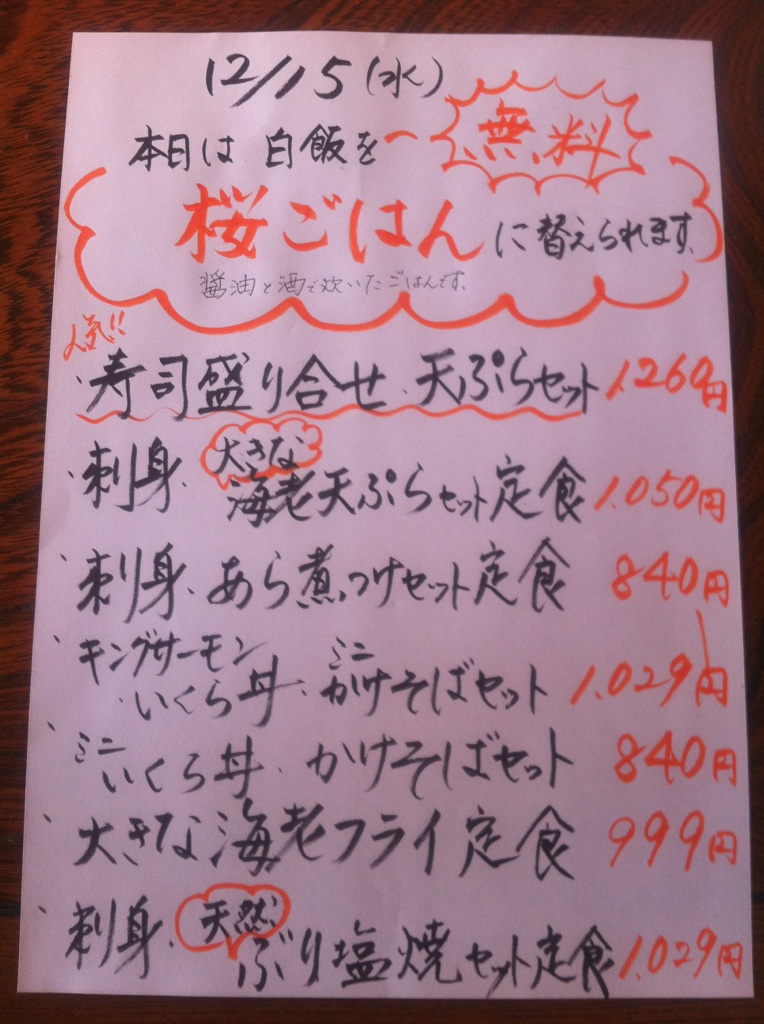 12/15(水)
本日は 白飯を 無料
桜ごはんに替えられます。
醤油と酒で炊いたごはんです。
人気!!
・寿司盛り合せ、天ぷらセット 1,260円
・刺身、大きな海老天ぷらセット定食 1,050円
・刺身、あら煮つけセット定食 840円
・キングサーモン
いくら丼、ミニかけそばセット 1,029円
・ミニいくら丼、かけそばセット 840円
・大きな海老フライ定食 999円
・刺身、天然ぶり塩焼セット定食 1,029円